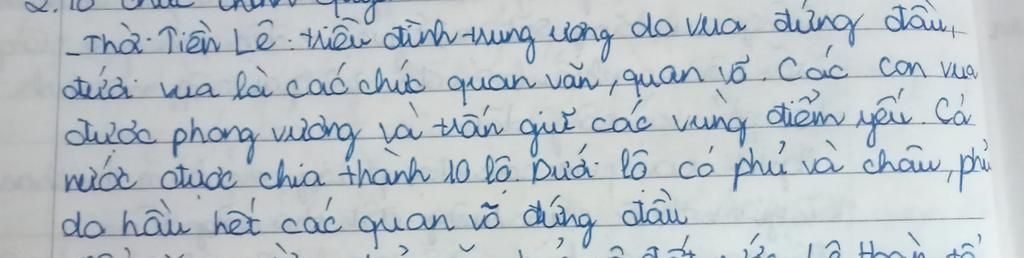 2.
-Thời Tiền Lê: triều đình trung ương do vua đứng đầu,
dưới vua là các chức quan văn, quan võ. Các con vua
được phong vương và trấn giữ các vùng điểm yếu. Cả
nước được chia thành 10 lộ. Dưới lộ có phủ và châu, phủ
do hầu hết các quan võ đứng đầu
Lê Hoàn tổ